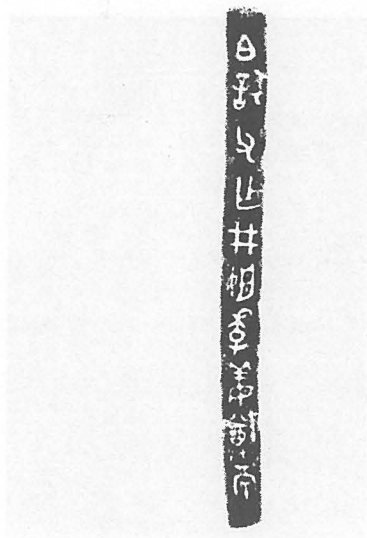 白狺父乍井姬季姜尊鬲